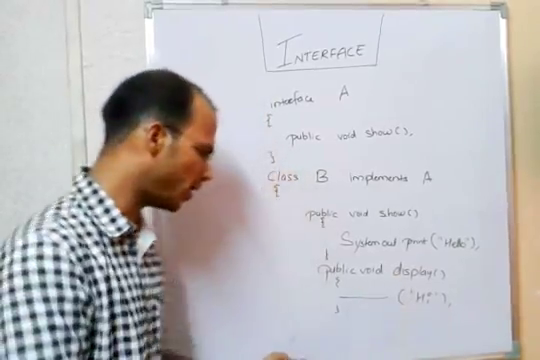 INTERFACE
interface A
{
public void show();
}
Class B implements A
{
public void show()
{
System.out.print("Hello");
}
public void display()
{
——— ("Hi");
}